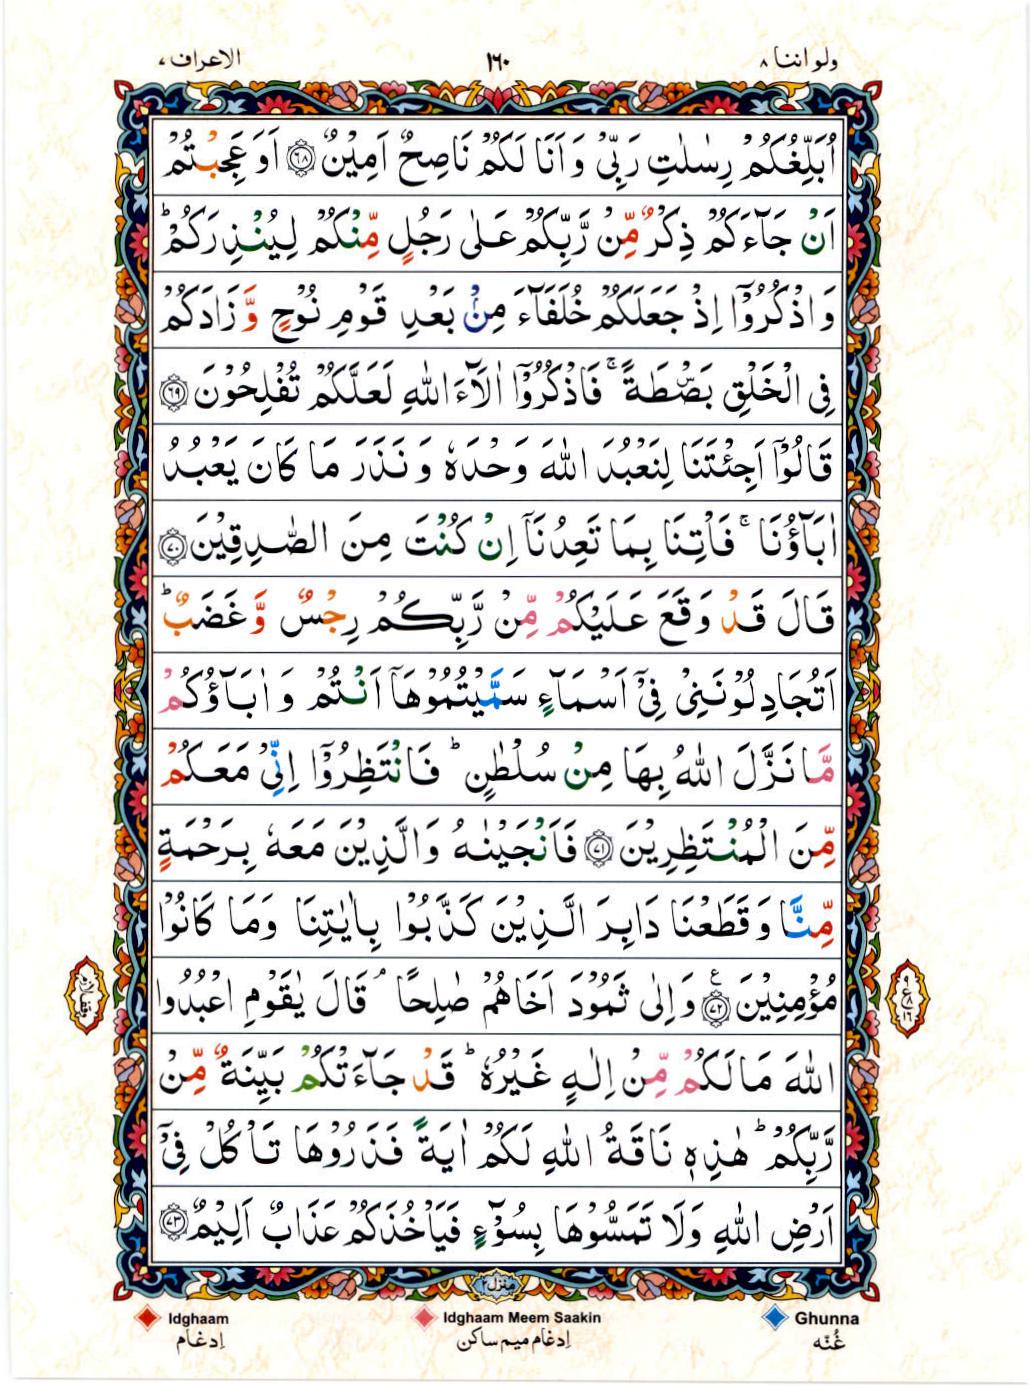 ولو اننا ۸
۱۶۰
الاعراف ۷
اُبَلِّغُكُمْ رِسٰلٰتِ رَبِّیْ وَاَنَا لَكُمْ نَاصِحٌ اَمِیْنٌ ﴿۶۸﴾ اَوَعَجِبْتُمْ
اَنْ جَآءَكُمْ ذِكْرٌ مِّنْ رَّبِّكُمْ عَلٰی رَجُلٍ مِّنْكُمْ لِیُنْذِرَكُمْ ؕ
وَاذْكُرُوْۤا اِذْ جَعَلَكُمْ خُلَفَآءَ مِنْۢ بَعْدِ قَوْمِ نُوْحٍ وَّ زَادَكُمْ
فِی الْخَلْقِ بَصْۜطَةً ۚ فَاذْكُرُوْۤا اٰلَآءَ اللّٰهِ لَعَلَّكُمْ تُفْلِحُوْنَ ﴿۶۹﴾
قَالُوْۤا اَجِئْتَنَا لِنَعْبُدَ اللّٰهَ وَحْدَهٗ وَنَذَرَ مَا كَانَ یَعْبُدُ
اٰبَآؤُنَا ۚ فَاْتِنَا بِمَا تَعِدُنَاۤ اِنْ كُنْتَ مِنَ الصّٰدِقِیْنَ ﴿۷۰﴾
قَالَ قَدْ وَقَعَ عَلَیْكُمْ مِّنْ رَّبِّكُمْ رِجْسٌ وَّغَضَبٌ ؕ
اَتُجَادِلُوْنَنِیْ فِیْۤ اَسْمَآءٍ سَمَّیْتُمُوْهَاۤ اَنْتُمْ وَاٰبَآؤُكُمْ
مَّا نَزَّلَ اللّٰهُ بِهَا مِنْ سُلْطٰنٍ ؕ فَانْتَظِرُوْۤا اِنِّیْ مَعَكُمْ
مِّنَ الْمُنْتَظِرِیْنَ ﴿۷۱﴾ فَاَنْجَیْنٰهُ وَالَّذِیْنَ مَعَهٗ بِرَحْمَةٍ
مِّنَّا وَقَطَعْنَا دَابِرَ الَّذِیْنَ كَذَّبُوْا بِاٰیٰتِنَا وَمَا كَانُوْا
مُؤْمِنِیْنَ ﴿۷۲﴾ ع وَاِلٰی ثَمُوْدَ اَخَاهُمْ صٰلِحًا ۘ قَالَ یٰقَوْمِ اعْبُدُوا
اللّٰهَ مَا لَكُمْ مِّنْ اِلٰهٍ غَیْرُهٗ ؕ قَدْ جَآءَتْكُمْ بَیِّنَةٌ مِّنْ
رَّبِّكُمْ ؕ هٰذِهٖ نَاقَةُ اللّٰهِ لَكُمْ اٰیَةً فَذَرُوْهَا تَاْكُلْ فِیْۤ
اَرْضِ اللّٰهِ وَلَا تَمَسُّوْهَا بِسُوْٓءٍ فَیَاْخُذَكُمْ عَذَابٌ اَلِیْمٌ ﴿۷۳﴾
Idghaam
اِدغَام
Idghaam Meem Saakin
اِدغام میم ساکن
Ghunna
غُنّه